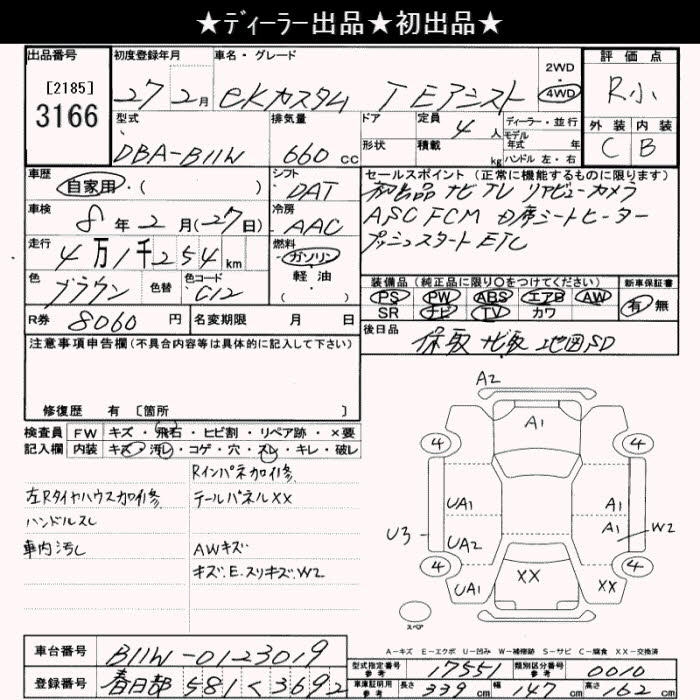 ★ディーラー出品★初出品★
出品番号
[2185]
3166
初度登録年月
27年 2月
車名・グレード
eKカスタム T Eアシスト
2WD・4WD
評価点
R小
外装 内装
C B
型式
DBA-B11W
排気量
660cc
ドア
形状
定員 4人
積載 kg
ディーラー・並行
モデル年式 年
ハンドル 左・右
車歴
自家用・( )
シフト
DAT
セールスポイント(正常に機能するものに限ります)
初出品 ナビ TV リアビューカメラ
ASC FCM D席シートヒーター
プッシュスタート ETC
車検
8年2月(27日)
冷房
AAC
走行
4万1千254km
燃料
ガソリン
軽・油
( )
色
ブラウン
色替
色コード
C12
装備品(純正品に限り〇をつけてください)
新車保証書
PS PW ABS エアB AW
SR ナビ TV カワ
有・無
R券 8060円
名変期限 月 日
後日品
保取 ナビ取 地図SD
注意事項申告欄(不具合内容等は具体的に記入して下さい)
修復歴 有 [箇所 ]
検査員
記入欄
FW キズ・飛石・ヒビ割・リペア跡・×要
内装 キズ・汚レ・コゲ・穴・スレ・キレ・破レ
Rインパネカロ修
左Rタイヤハウス加修
テールパネルXX
ハンドルスレ
車内汚レ
AWキズ
キズ.E.スリキズ.W2
A2
A1
4 4
UA1 A1
A1
U3 UA2 W2
4 4
XX
UA1 XX
スペア
A-キズ E-エクボ U-凹み W-補修跡 S-サビ C-腐食 XX-交換済
車台番号 B11W-0123019
登録番号 春日部 581 く 3692
型式指定番号 参考 17551
類別区分番号 参考 0010
車庫証明用 参考 長さ 339cm 幅 147cm 高さ 162cm